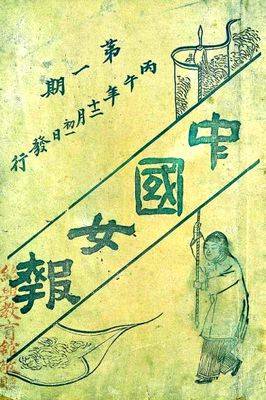 丙午年十二月初一日發行
第一期
中國女報